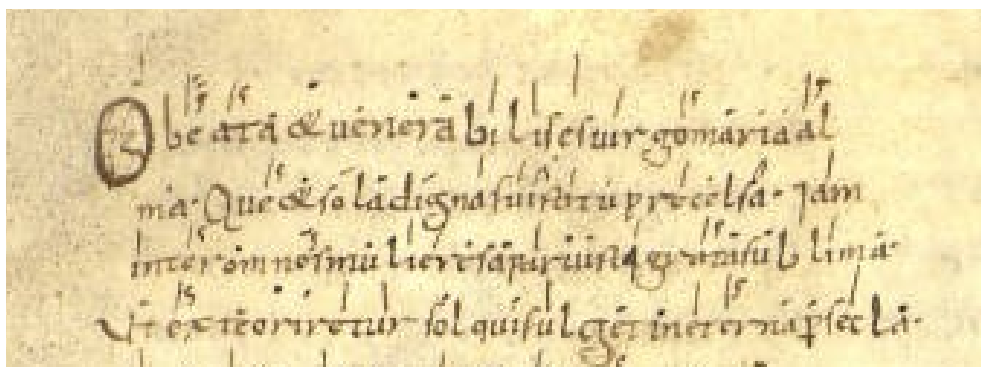 O beata & venerabilis es uirgo maria al
ma. Que & sola digna fuisti tu pro celsa. Jam
inter omnes mulieres a puriusta gratia sublima.
Ut ex te oriretur sol qui fulget in eterna p secla.